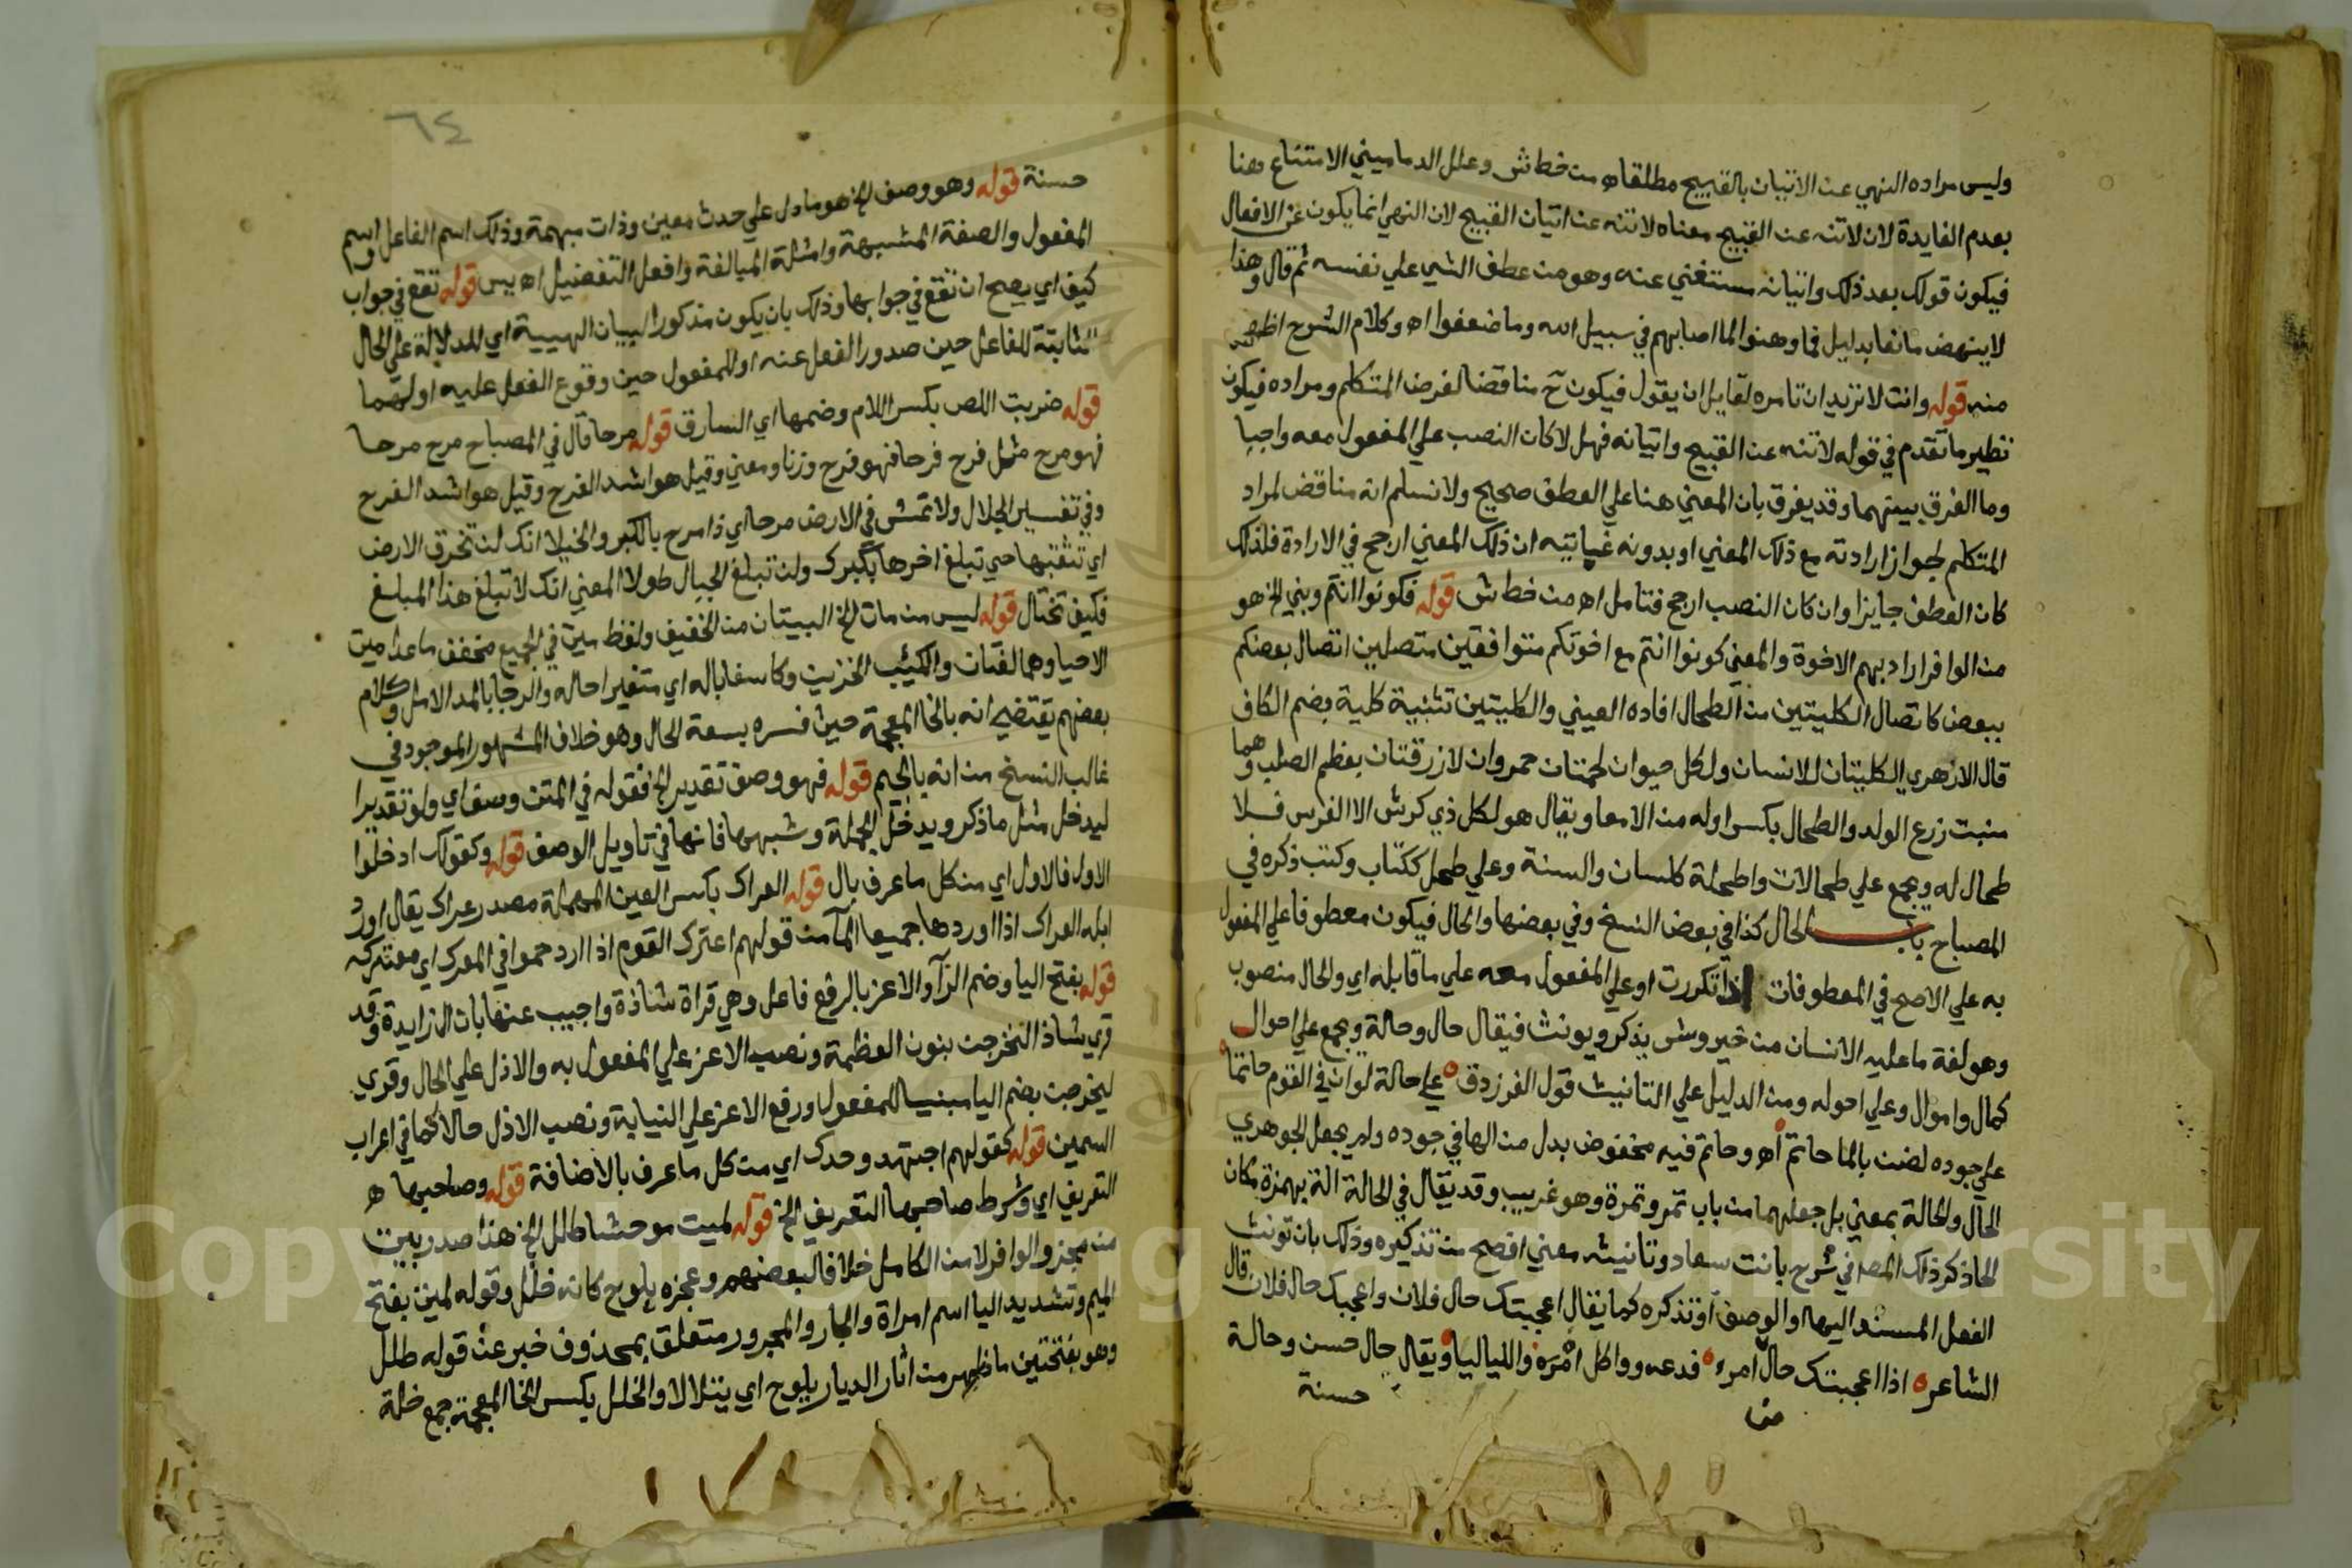 وليس مراده النهي عن الاتيان بالقبيح مطلقا اه من خط ش وعلل الدماميني الامتناع هنا
بعدم الفايدة لان لاتنه عن القبيح معناه لاتنه عن اتيان القبيح لان النهي انما يكون عن الافعال
فيكون قولك بعد ذلك واتيانه مستغني عنه وهو من عطف الشي علي نفسه ثم قال وهذا
لا ينهض مانعا بدليل فما وهنوا لما اصابهم في سبيل الله وما ضعفوا اه وكلام الشرح اظهر
منه قوله وانت لا تريد ان تامره لقايل ان يقول فيكون ح مناقضا لغرض المتكلم ومراده فيكون
نظير ما تقدم في قوله لاتنه عن القبيح واتيانه فهل لا كان النصب علي المفعول معه واجبا
وما الفرق بينهما وقد يفرق بان المعني هنا علي العطف صحيح ولا نسلم انه مناقض لمراد
المتكلم لجواز ارادته مع ذلك المعني او بدونه غايته ان ذلك المعني ارجح في الارادة فلذلك
كان العطف جايزا وان كان النصب ارجح فتامل اه من خط ش قوله فكونوا انتم وبني الخ هو
من الوافر اراد بهم الاخوة والمعني كونوا انتم مع اخوتكم متوافقين متصلين اتصال بعضكم
ببعض كاتصال الكليتين من الطحال افاده العيني والكليتين تثنية كلية بضم الكاف
قال الازهري الكليتان للانسان ولكل حيوان لحمتان حمروان لازرقتان بعظم الصلب وهما
منبت زرع الولد والطحال بكسر اوله من الامعا ويقال هو لكل ذي كرش الا الفرس فلا
طحال له ويجمع علي طحالات واطحلة كلسان والسنة وعلي طحل ككتاب وكتب ذكره في
المصباح باب الحال كذا في بعض النسخ وفي بعضها والحال فيكون معطوفا علي المفعول
به علي الاصح في المعطوفات اذا تكررت او علي المفعول معه علي ما قابله اي والحال منصوب
وهو لغة ما عليه الانسان من خير وشر يذكر ويونث فيقال حال وحالة ويجمع علي احوال
كمال واموال وعلي احوله ومن الدليل علي التانيث قول الفرزدق علي حالة لو ان في القوم حاتما
علي جوده لضن بالما حاتم اه وحاتم فيه مخفوض بدل من الها في جوده ولم يجعل الجوهري
الحال والحالة بمعني بل جعلهما من باب تمر وتمرة وهو غريب وقد يقال في الحالة الة بهمزة مكان
الحا ذكر ذلك المصه في شرح بانت سعاد وتانيثه معني افصح من تذكيره وذلك بان تونث
الفعل المسند اليها او الوصف او تذكره كما يقال اعجبتك حال فلان واعجبك حال فلان قال
الشاعر اذا اعجبتك حال امرء فدعه وواكل امره واللياليا ويقال حال حسن وحالة
حسنة
حسنة قوله وهو وصف الخ هو ما دل علي حدث معين وذات مبهمة وذلك اسم الفاعل واسم
المفعول والصفة المشبهة وامثلة المبالغة وافعل التفضيل اه يس قوله تقع في جواب
كيف اي يصح ان تقع في جوابها وذلك بان يكون مذكورا لبيان الهيية اي للدلالة علي الحال
الثابتة للفاعل حين صدور الفعل عنه او للمفعول حين وقوع الفعل عليه او لهما
قوله ضربت اللص بكسر اللام وضمها اي السارق قوله مرحا قال في المصباح مرح مرحا
فهو مرح مثل فرح فرحا فهو فرح وزنا ومعني وقيل هو اشد الفرح وقيل هو اشد الفرح
وفي تفسير الجلال ولا تمش في الارض مرحا اي ذا مرح بالكبر والخيلا انك لن تخرق الارض
اي تثقبها حتي تبلغ اخرها بكبرك ولن تبلغ الجبال طولا المعني انك لا تبلغ هذا المبلغ
فكيف تختال قوله ليس من مات الخ البيتان من الخفيف ولفظ ميت في الجميع مخفف ما عدا ميت
الاحيا وهما لغتان والكئيب الحزين وكاسفا باله اي متغيرا حاله والرجا بالمد الامل وكلام
بعضهم يقتضي انه بالخا المعجمة حيث فسره بسعة الحال وهو خلاف المشهور الموجود في
غالب النسخ من انه بالجيم قوله فهو وصف تقديرا الخ فقوله في المتن وصف اي ولو تقديرا
ليدخل مثل ما ذكر ويدخل الجملة وشبهها فانها في تاويل الوصف قوله وكقولك ادخلوا
الاول فالاول اي من كل ما عرف بال قوله العراك بكسر العين المهملة مصدر عراك يقال اورد
ابله العراك اذا اوردها جميعا الماء من قولهم اعترك القوم اذا ازدحموا في المعرك اي معتركه
قوله بفتح اليا وضم الرا والاعز بالرفع فاعل وهي قراة شاذة واجيب عنها بان ال زايدة وقد
قري شاذا لنخرجن بنون العظمة ونصب الاعز علي المفعول به والاذل علي الحال وقري
ليخرجن بضم اليا مبنيا للمفعول ورفع الاعز علي النيابة ونصب الاذل حالا كما في اعراب
السمين قوله كقولهم اجتهد وحدك اي من كل ما عرف بالاضافة قوله وصاحبها ه
التعريف اي وشرط صاحبها التعريف الخ قوله لميت موحشا طلل الخ هذا صدر بيت
من مجزو الوافر لا من الكامل خلافا لبعضهم وعجزه يلوح كانه خلل وقوله لمية بفتح
الميم وتشديد اليا اسم امراة والجار والمجرور متعلق بمحذوف خبر عن قوله طلل
وهو بفتحتين ما ظهر من اثار الديار يلوح اي يتلالا والخلل بكسر الخا المعجمة جمع خلة
٦٤
Copyright © King Saud University